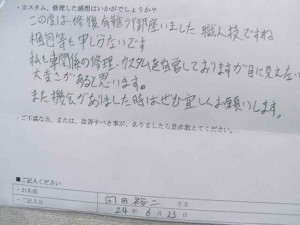 ・カスタム、修理した感想はいかがでしょうか？
この度は修復有難う御座いました 職人技ですね
梱包等も申し分ないです
私も車関係の修理・カスタムを自営しておりますが目に見えない
大変さがあると思います。
また機会がありました時はぜひ宜しくお願いします。
・ご不満な点、または、改善すべき事が、ありましたら是非教えてください。
■ご記入ください
・お名前
・ご記入日 24年6月23日